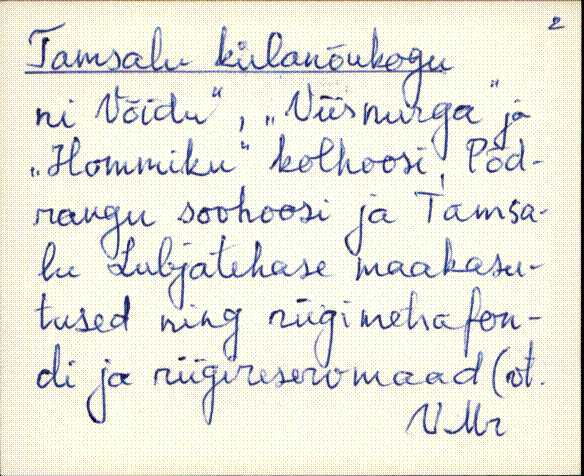 2
Tamsalu külanõukogu
ni Võidu", „Viisnurga" ja
„Hommiku" kolhoosi, Põd-
rangu soohoosi ja Tamsa-
lu Lubjatehase maakasu-
tused ning riigimetsafon-
di ja riigireservmaad (vt.
VMr